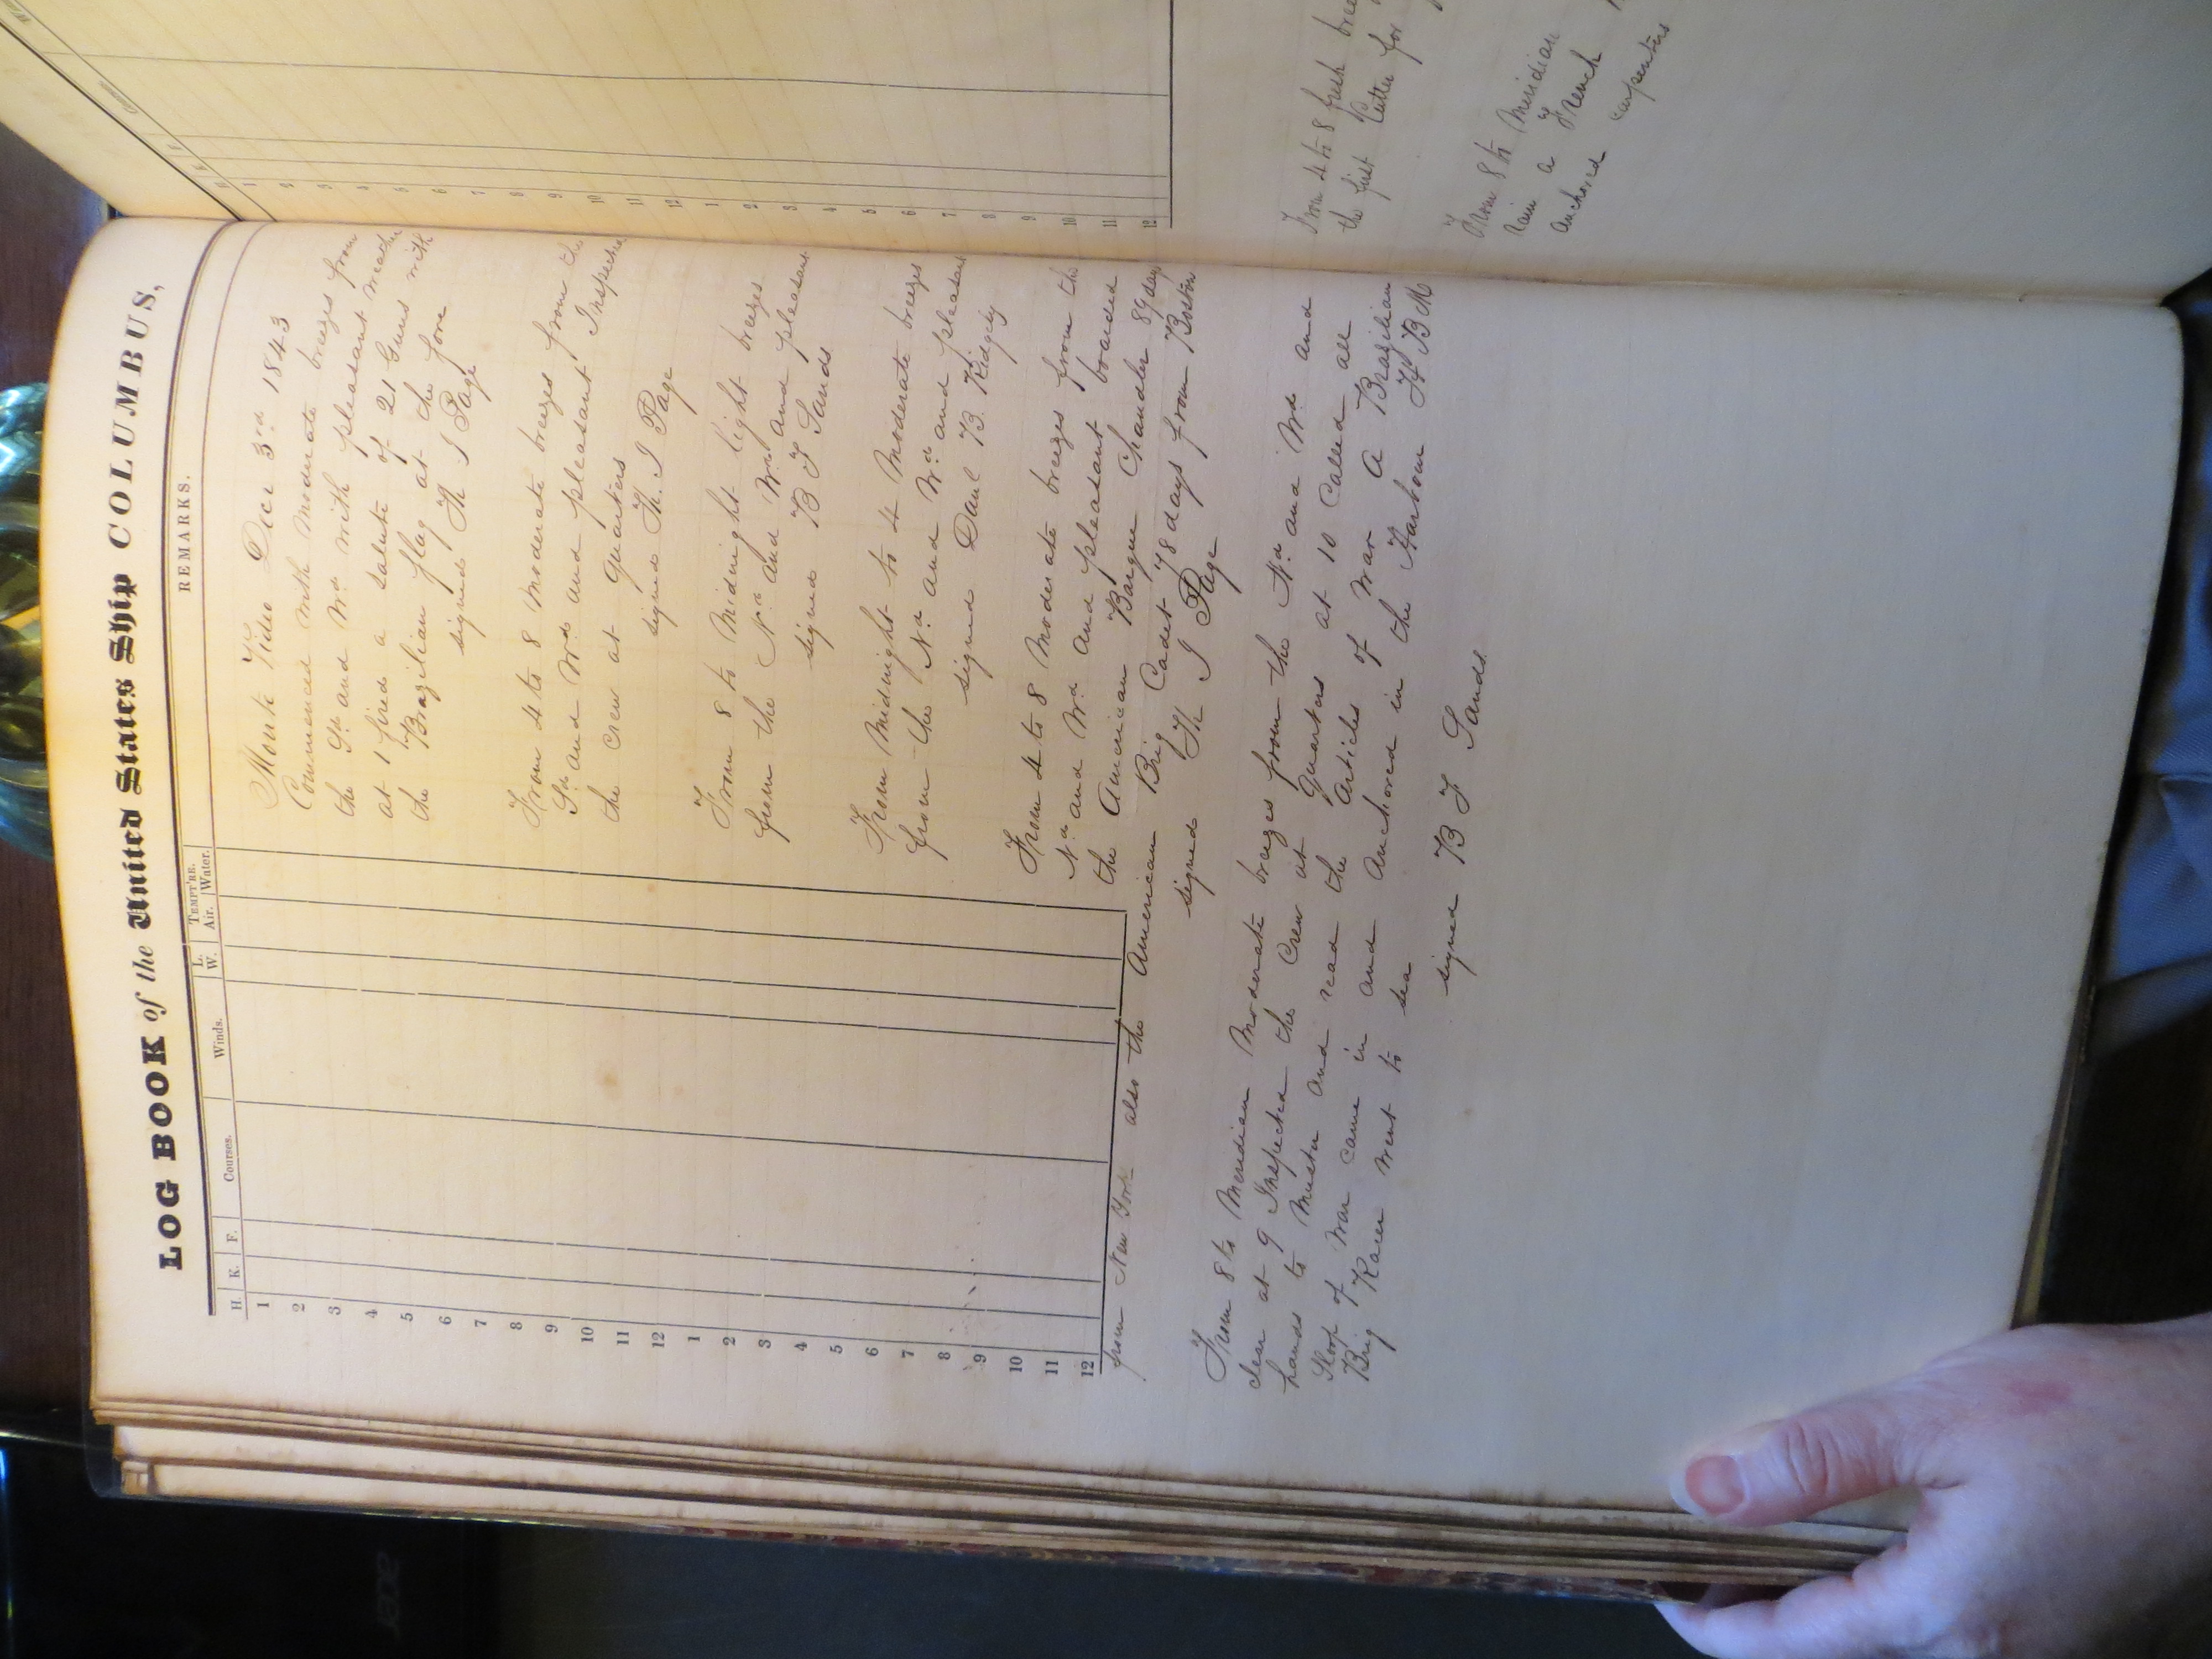 LOG BOOK of the United States Ship COLUMBUS,
H. K. F. Courses. Winds. L. W. TEMPT'RE. Air. Water. REMARKS.
1
2
3
4
5
6
7
8
9
10
11
12
1
2
3
4
5
6
7
8
9
10
11
12
Monte Video Decr 3rd 1843
Commenced with moderate breezes from
the Sd and Wd with pleasant weather
at 1 fired a salute of 21 Guns with
the Brazilian flag at the fore
signed Th. J Page
From 4 to 8 Moderate breezes from the
Sd and Wd and pleasant Inspected
the crew at quarters
signed Th. J Page
From 8 to Midnight light breezes
from the Nd and Wd and pleasant
signed B F Sands
From Midnight to 4 Moderate breezes
from the Nd and Wd and pleasant
signed Danl B. Ridgely
From 4 to 8 Moderate breezes from the
Nd and Wd and pleasant boarded
the American Barque Chandler 89 days
from New York also the American Brig Cadet 78 days from Boston
signed Th J Page
From 8 to Meridian Moderate breezes from the Nd and Wd and
clear at 9 Inspected the Crew at Quarters at 10 Called all
hands to Muster and read the Articles of War a Brazilian
Sloop of War came in and Anchored in the Harbour H B M
Brig Racer went to sea
signed B F Sands
1
2
3
4
5
6
7
8
9
10
11
12
1
2
3
4
5
6
7
8
9
10
11
12
From 4 to 8 fresh
the first Cutter for
From 8 to Meridian
rain a French
anchored carpenters
acer